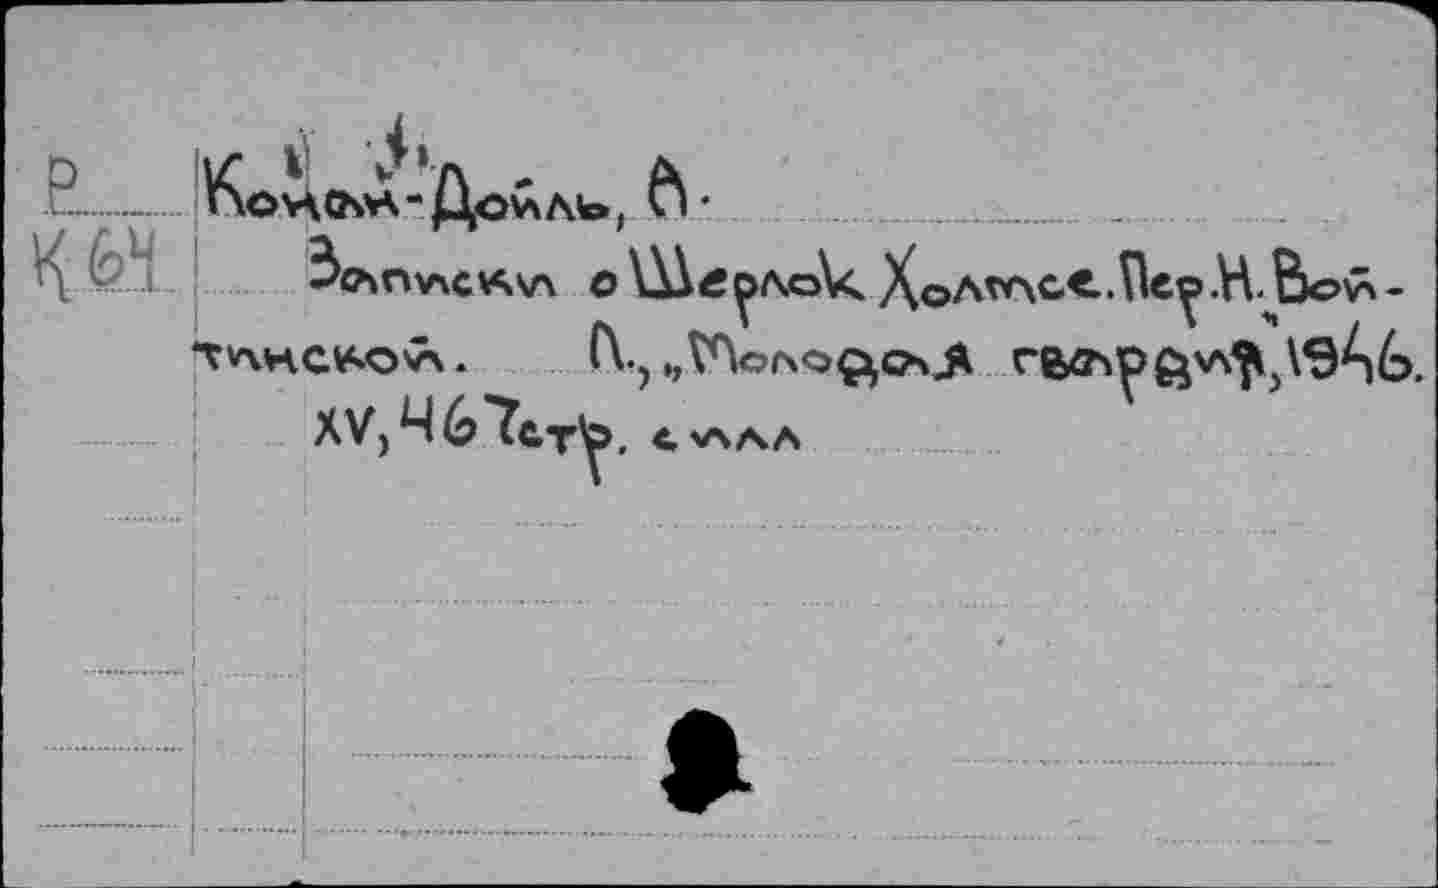 Р Конан-Дойль, А.
К 64 Записки о Шерлок Холмсе. Пер. Н. Вой-
тинской. Л., „Молодая гвардия", 1946.
XV, 467 стр. с илл